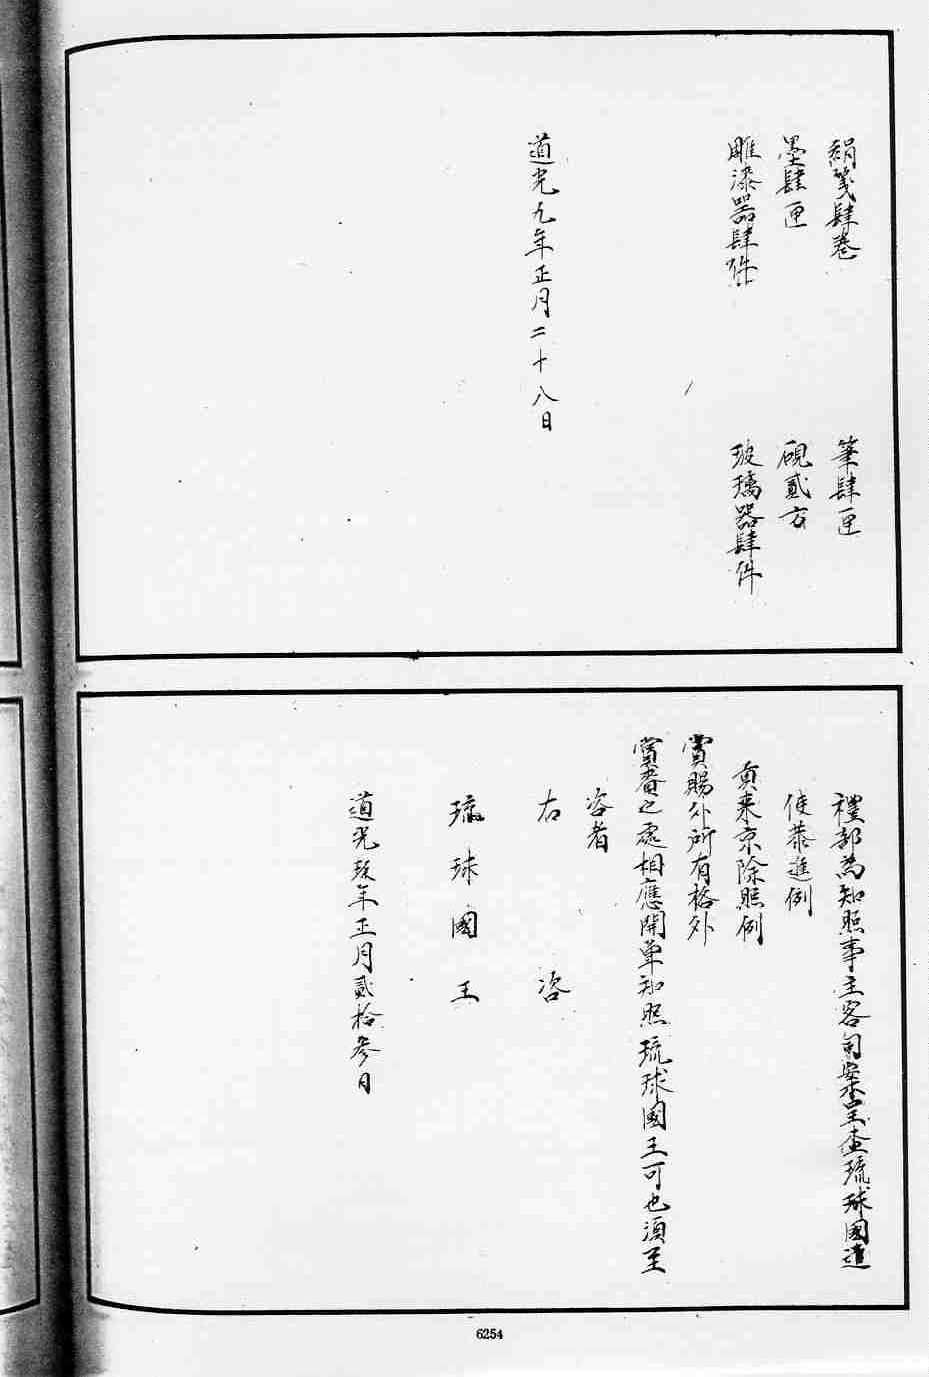 絹箋肆卷　筆肆匣
墨肆匣　硯貳方
雕漆器肆件　玻璃器肆件
道光九年正月二十八日
禮部為知照事主客司案呈查琉球國遣
使恭進例
貢來京除照例
賞賜外所有格外
賞賚之處相應開單知照琉球國王可也須至
咨者
右咨
琉球國王
道光玖年正月貳拾參日
6254